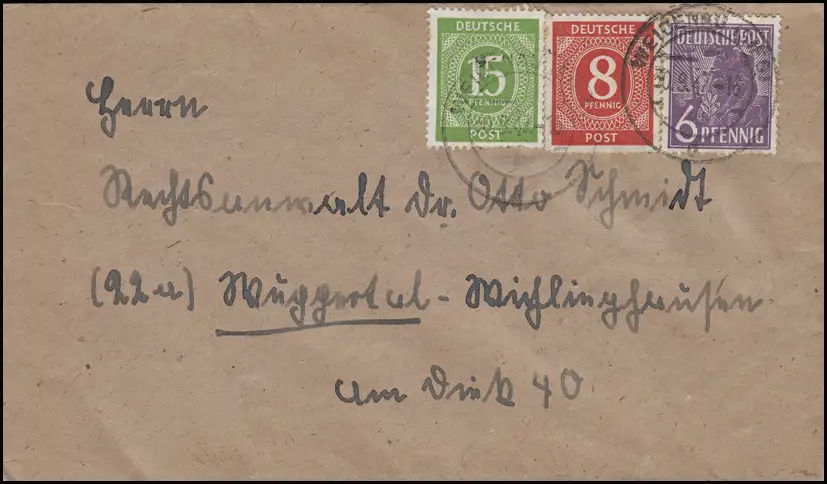 DEUTSCHE
15
PFENNIG
POST
DEUTSCHE
8
PFENNIG
POST
DEUTSCHE POST
6 PFENNIG
Herrn
Rechtsanwalt Dr. Otto Schmidt
(22a) Wuppertal - Wichlinghausen
am Diek 40